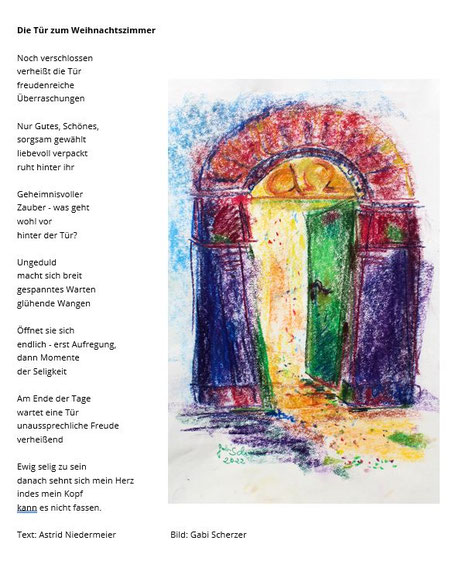 Die Tür zum Weihnachtszimmer
Noch verschlossen
verheißt die Tür
freudenreiche
Überraschungen
Nur Gutes, Schönes,
sorgsam gewählt
liebevoll verpackt
ruht hinter ihr
Geheimnisvoller
Zauber - was geht
wohl vor
hinter der Tür?
Ungeduld
macht sich breit
gespanntes Warten
glühende Wangen
Öffnet sie sich
endlich - erst Aufregung,
dann Momente
der Seligkeit
Am Ende der Tage
wartet eine Tür
unaussprechliche Freude
verheißend
Ewig selig zu sein
danach sehnt sich mein Herz
indes mein Kopf
kann es nicht fassen.
2022
Text: Astrid Niedermeier Bild: Gabi Scherzer